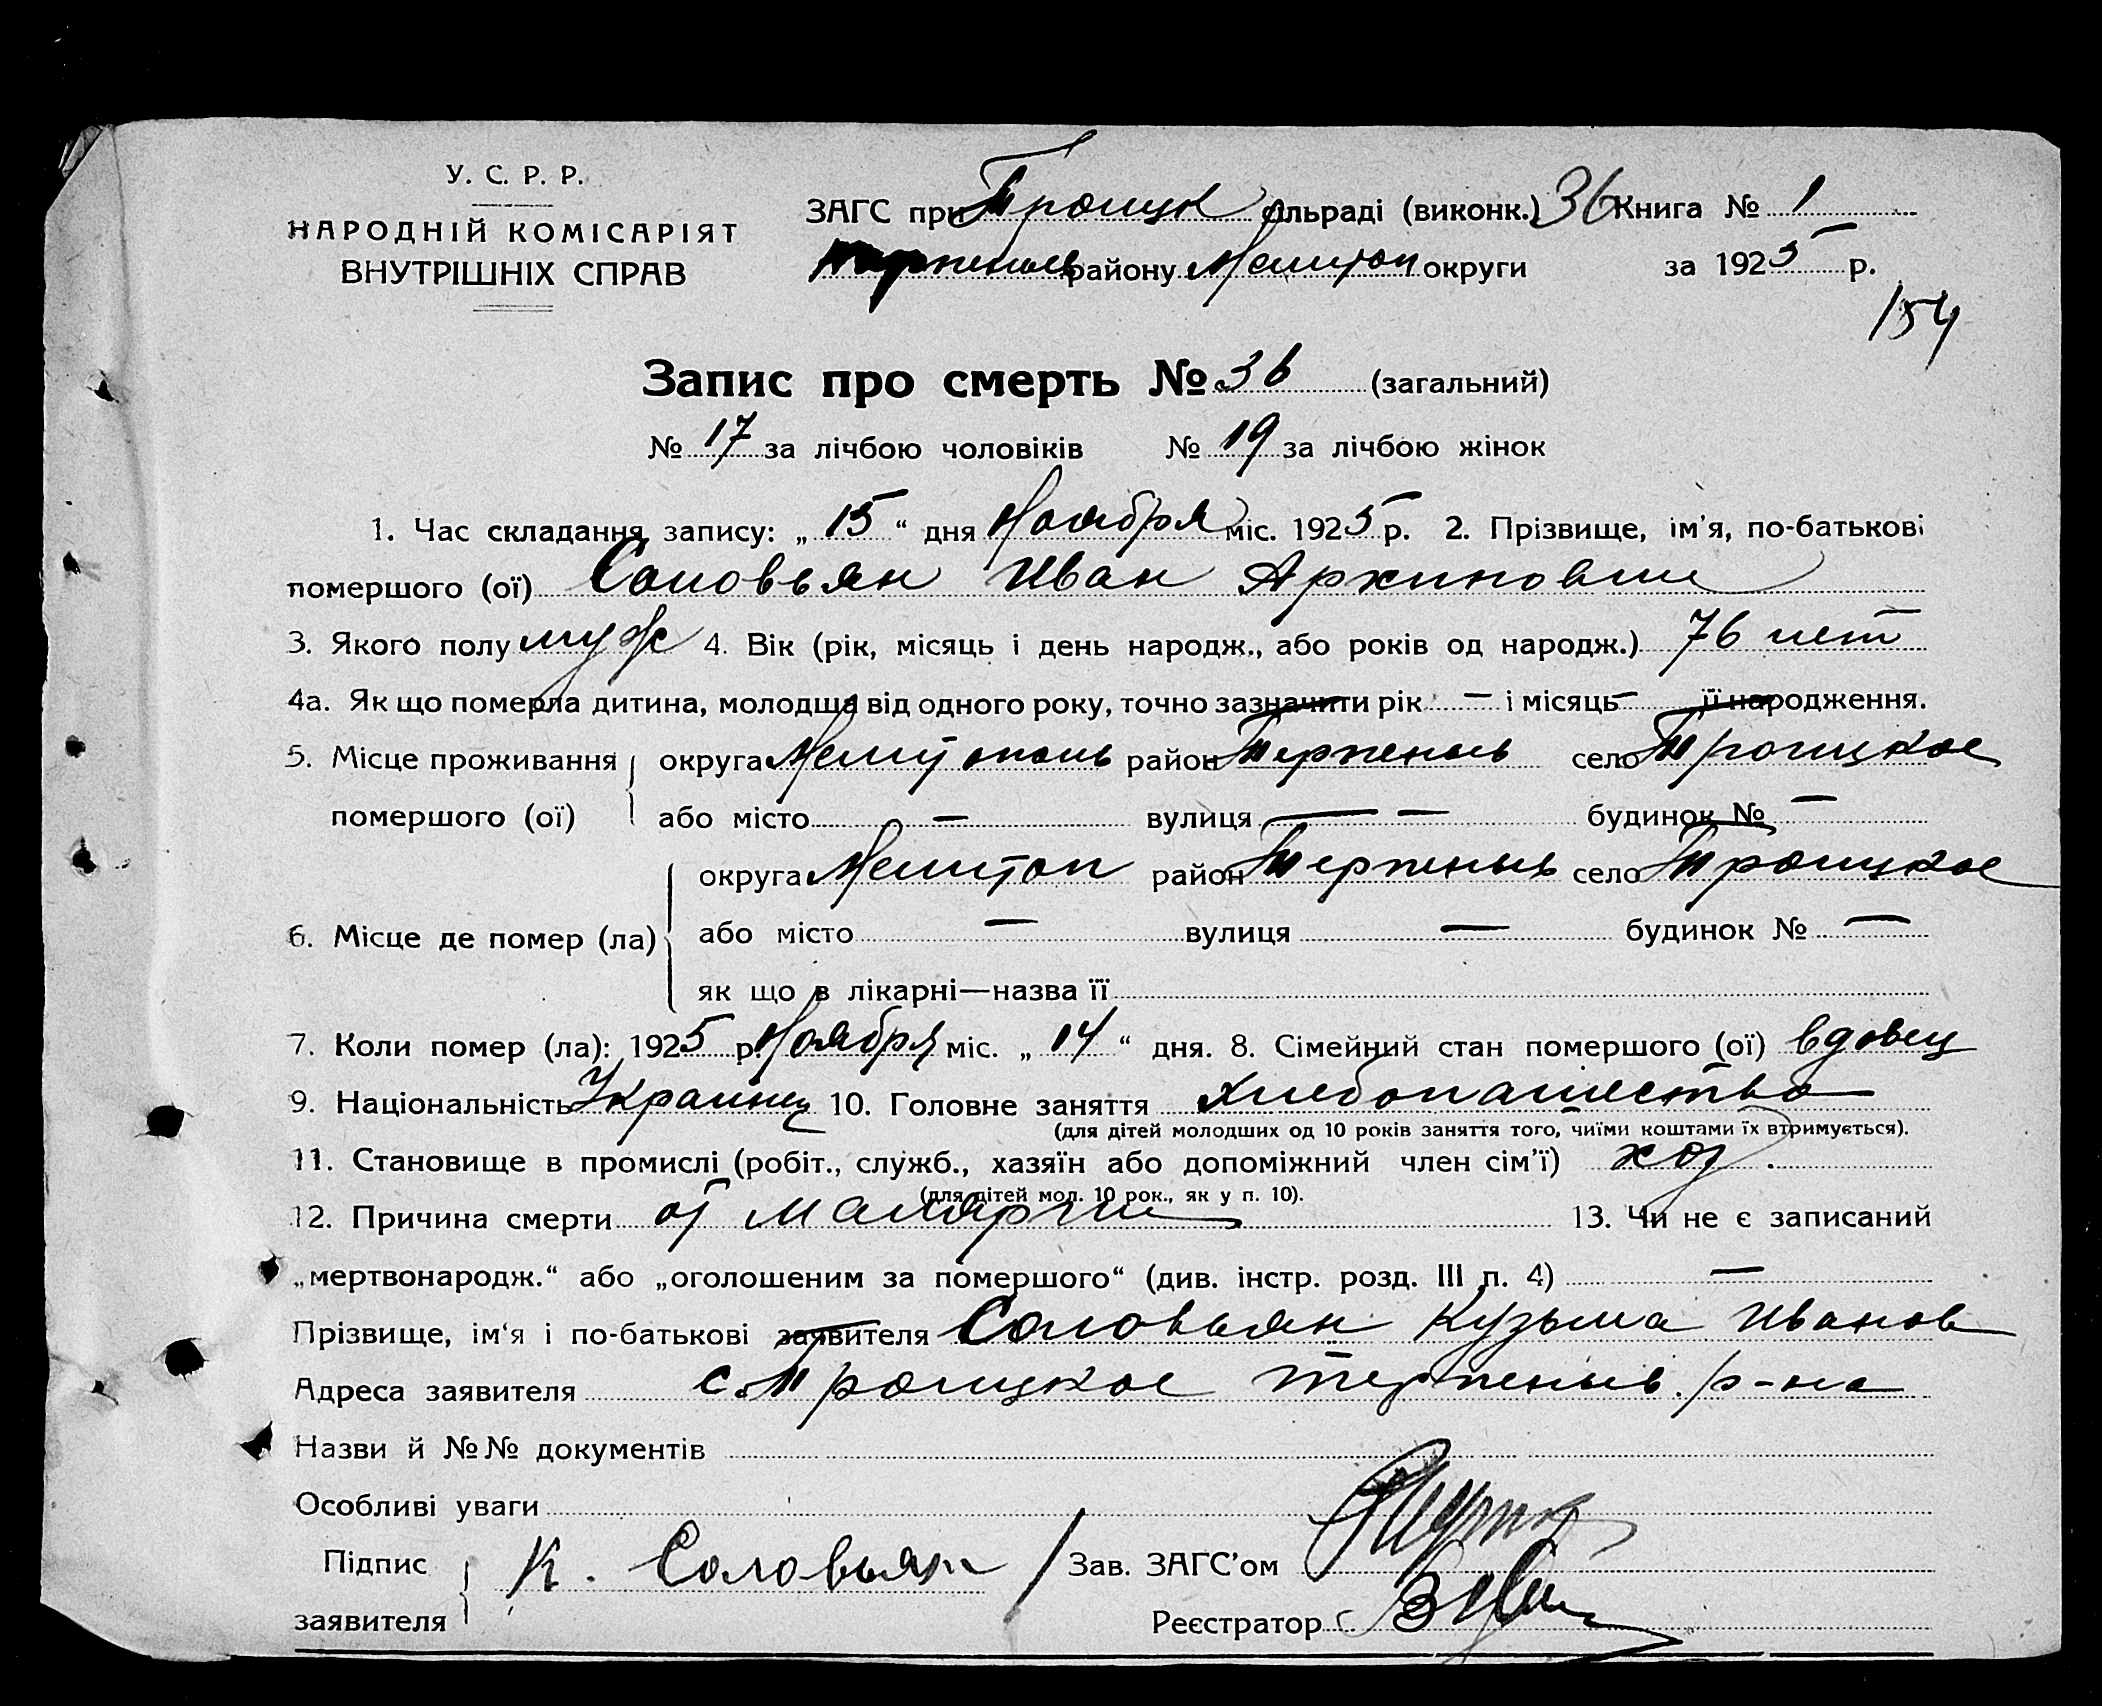 У. С. Р. Р.
НАРОДНІЙ КОМІСАРІЯТ
ВНУТРІШНІХ СПРАВ
ЗАГС при Троицк сільраді (виконк.) 36 Книга № 1
Терпеньев району Мелитоп округи за 1925 р.
154
Запис про смерть № 36 (загальний)
№ 17 за лічбою чоловіків № 19 за лічбою жінок
1. Час складання запису: „ 15 “ дня Ноября міс. 1925 р. 2. Прізвище, ім'я, по-батькові
помершого (ої) Соловьян Иван Архипович
3. Якого полу муж 4. Вік (рік, місяць і день народж., або років од народж.) 76 лет
4а. Як що померла дитина, молодша від одного року, точно зазначити рік — і місяць — її народження.
5. Місце проживання округа Мелитополь район Терпеньев село Троицкое
помершого (ої) або місто — вулиця — — будинок № —
округа Мелитоп район Терпеньев село Троицкое
6. Місце де помер (ла) або місто — вулиця — будинок № —
як що в лікарні—назва її
7. Коли помер (ла): 1925 р. Ноября міс. „ 14 “ дня. 8. Сімейний стан помершого (ої) вдовец
9. Національність Украинец 10. Головне заняття хлебопашество
(для дітей молодших од 10 років заняття того, чиїми коштами їх втримується).
11. Становище в промислі (робіт., служб., хазяїн або допоміжний член сім'ї) хоз.
(для дітей мол. 10 рок., як у п. 10).
12. Причина смерти от малярии 13. Чи не є записаний
„мертвонародж.“ або „оголошеним за помершого“ (див. інстр. розд. III п. 4) —
Прізвище, ім'я і по-батькові заявителя Соловьян Кузьма Иванов
Адреса заявителя с. Троицкое Терпеньев. р-на
Назви й №№ документів
Особливі уваги
Підпис К. Соловьян Зав. ЗАГС'ом
заявителя Реєстратор